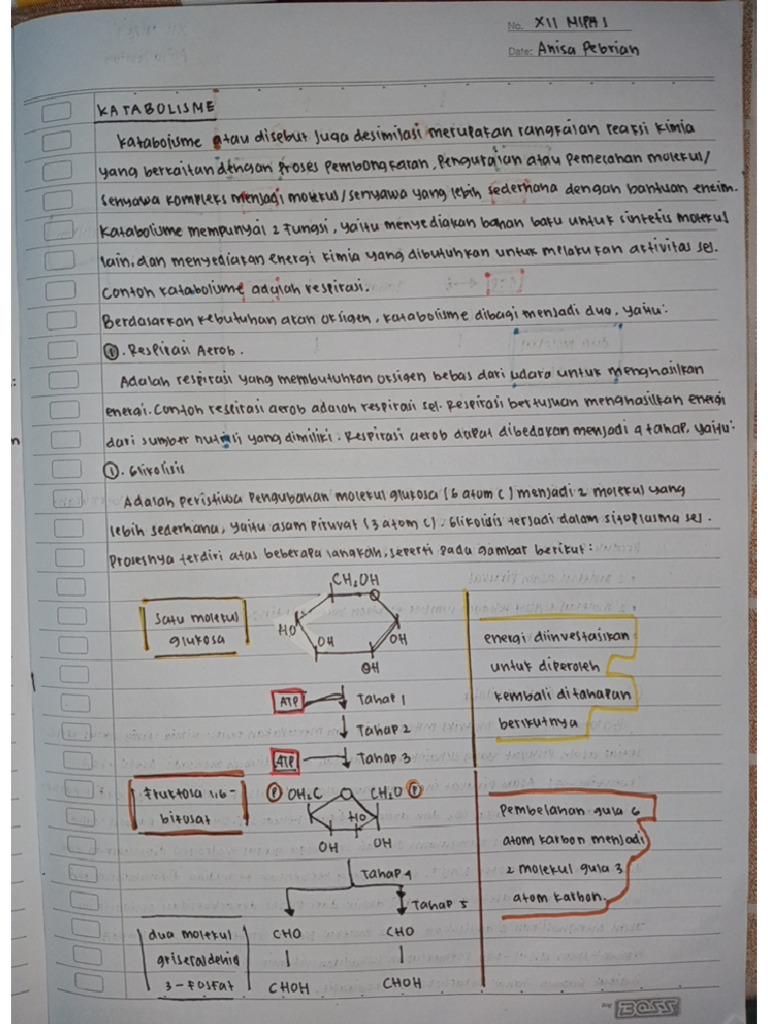 No. XII MIPA 1
Date: Anisa Pebrian
KATABOLISME
Katabolisme atau disebut juga desimilasi merupakan rangkaian reaksi kimia
yang berkaitan dengan proses pembongkaran, penguraian atau pemecahan molekul/
senyawa kompleks menjadi molekul/senyawa yang lebih sederhana dengan bantuan enzim.
Katabolisme mempunyai 2 fungsi, yaitu menyediakan bahan baku untuk sintetis molekul
lain, dan menyediakan energi kimia yang dibutuhkan untuk melakukan aktivitas sel.
Contoh katabolisme adalah respirasi.
Berdasarkan kebutuhan akan oksigen, katabolisme dibagi menjadi dua, yaitu:
1. Respirasi Aerob.
Adalah respirasi yang membutuhkan oksigen bebas dari udara untuk menghasilkan
energi. Contoh respirasi aerob adalah respirasi sel. Respirasi bertujuan menghasilkan energi
dari sumber nutrisi yang dimiliki. Respirasi aerob dapat dibedakan menjadi 4 tahap, yaitu:
1. Glikolisis
Adalah peristiwa pengubahan molekul glukosa (6 atom C) menjadi 2 molekul yang
lebih sederhana, yaitu asam piruvat (3 atom C). Glikolisis terjadi dalam sitoplasma sel.
Prosesnya terdiri atas beberapa langkah, seperti pada gambar berikut:
Satu molekul
glukosa
CH₂OH
O
HO
OH
OH
OH
energi diinvestasikan
untuk diperoleh
kembali ditahapan
berikutnya
ATP
Tahap 1
Tahap 2
ATP
Tahap 3
Fruktosa 1,6-
bifosfat
P OH₂C
O
CH₂O P
HO
OH
OH
Pembelahan gula 6
atom karbon menjadi
2 molekul gula 3
atom karbon.
Tahap 4
Tahap 5
dua molekul
griseraldehid
3-fosfat
CHO
CHO
CHOH
CHOH
BOSS